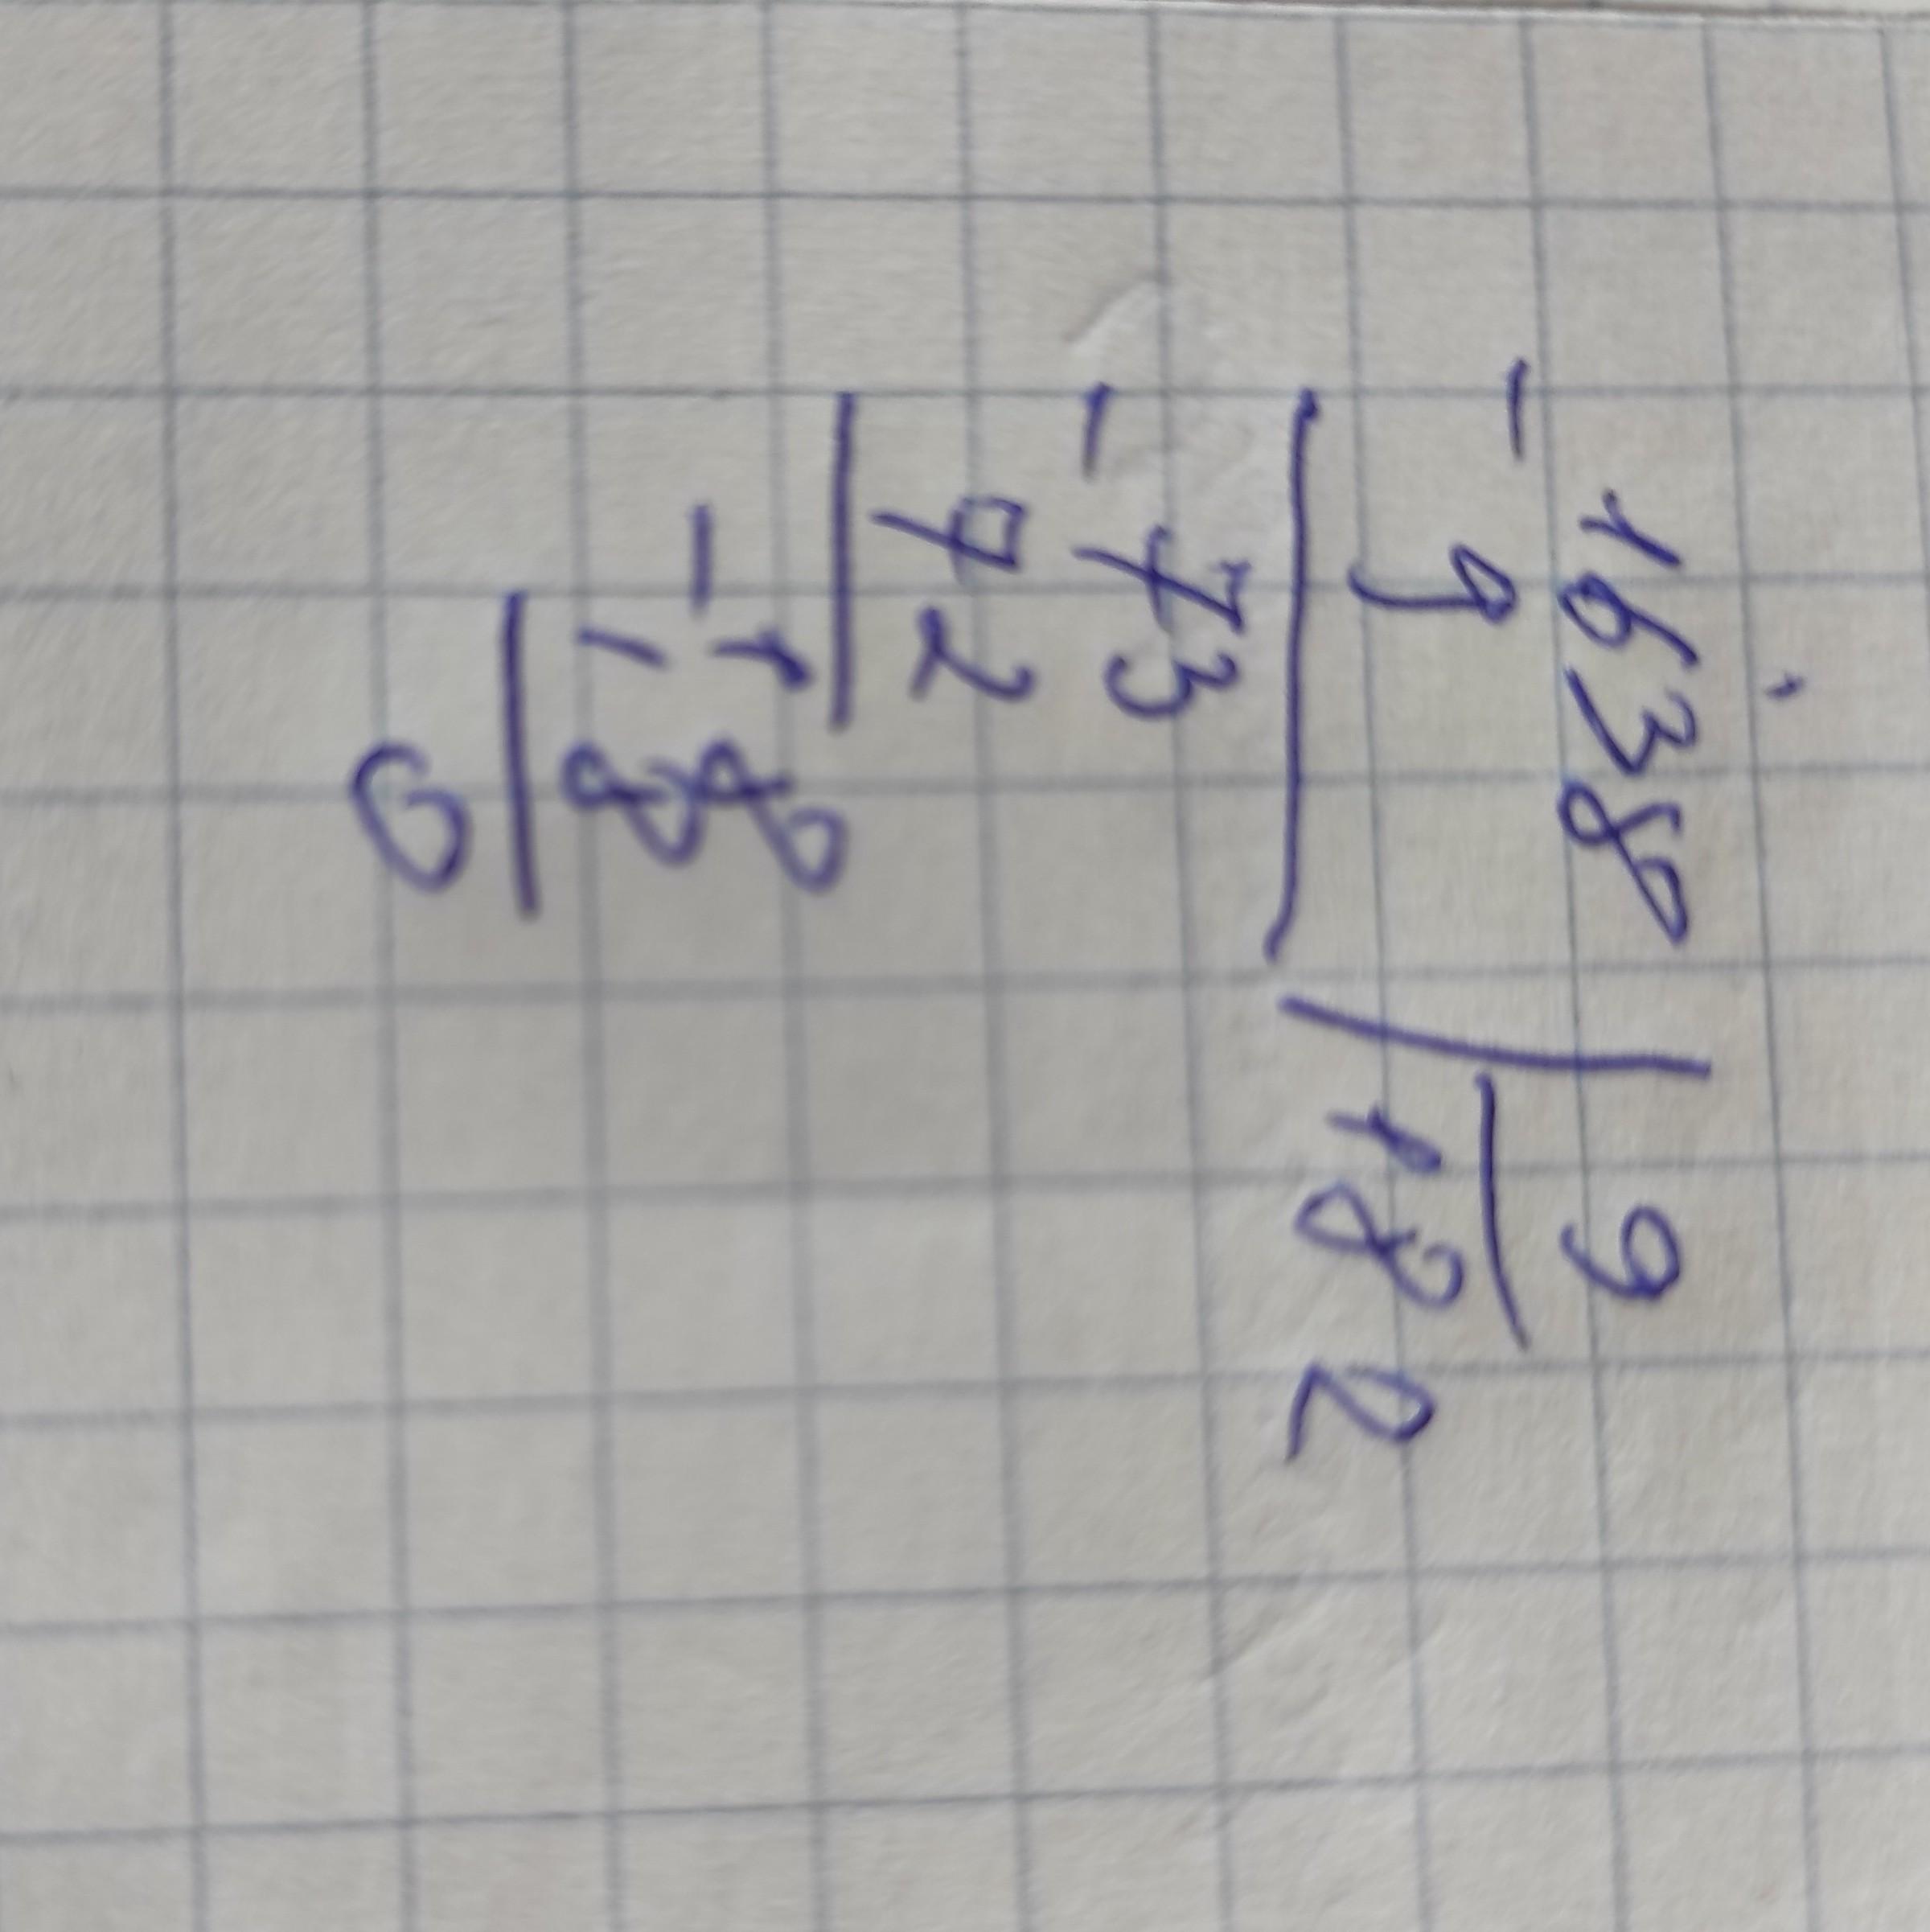 - 1638 | 9
9 182
- 73
72
- 18
18
0